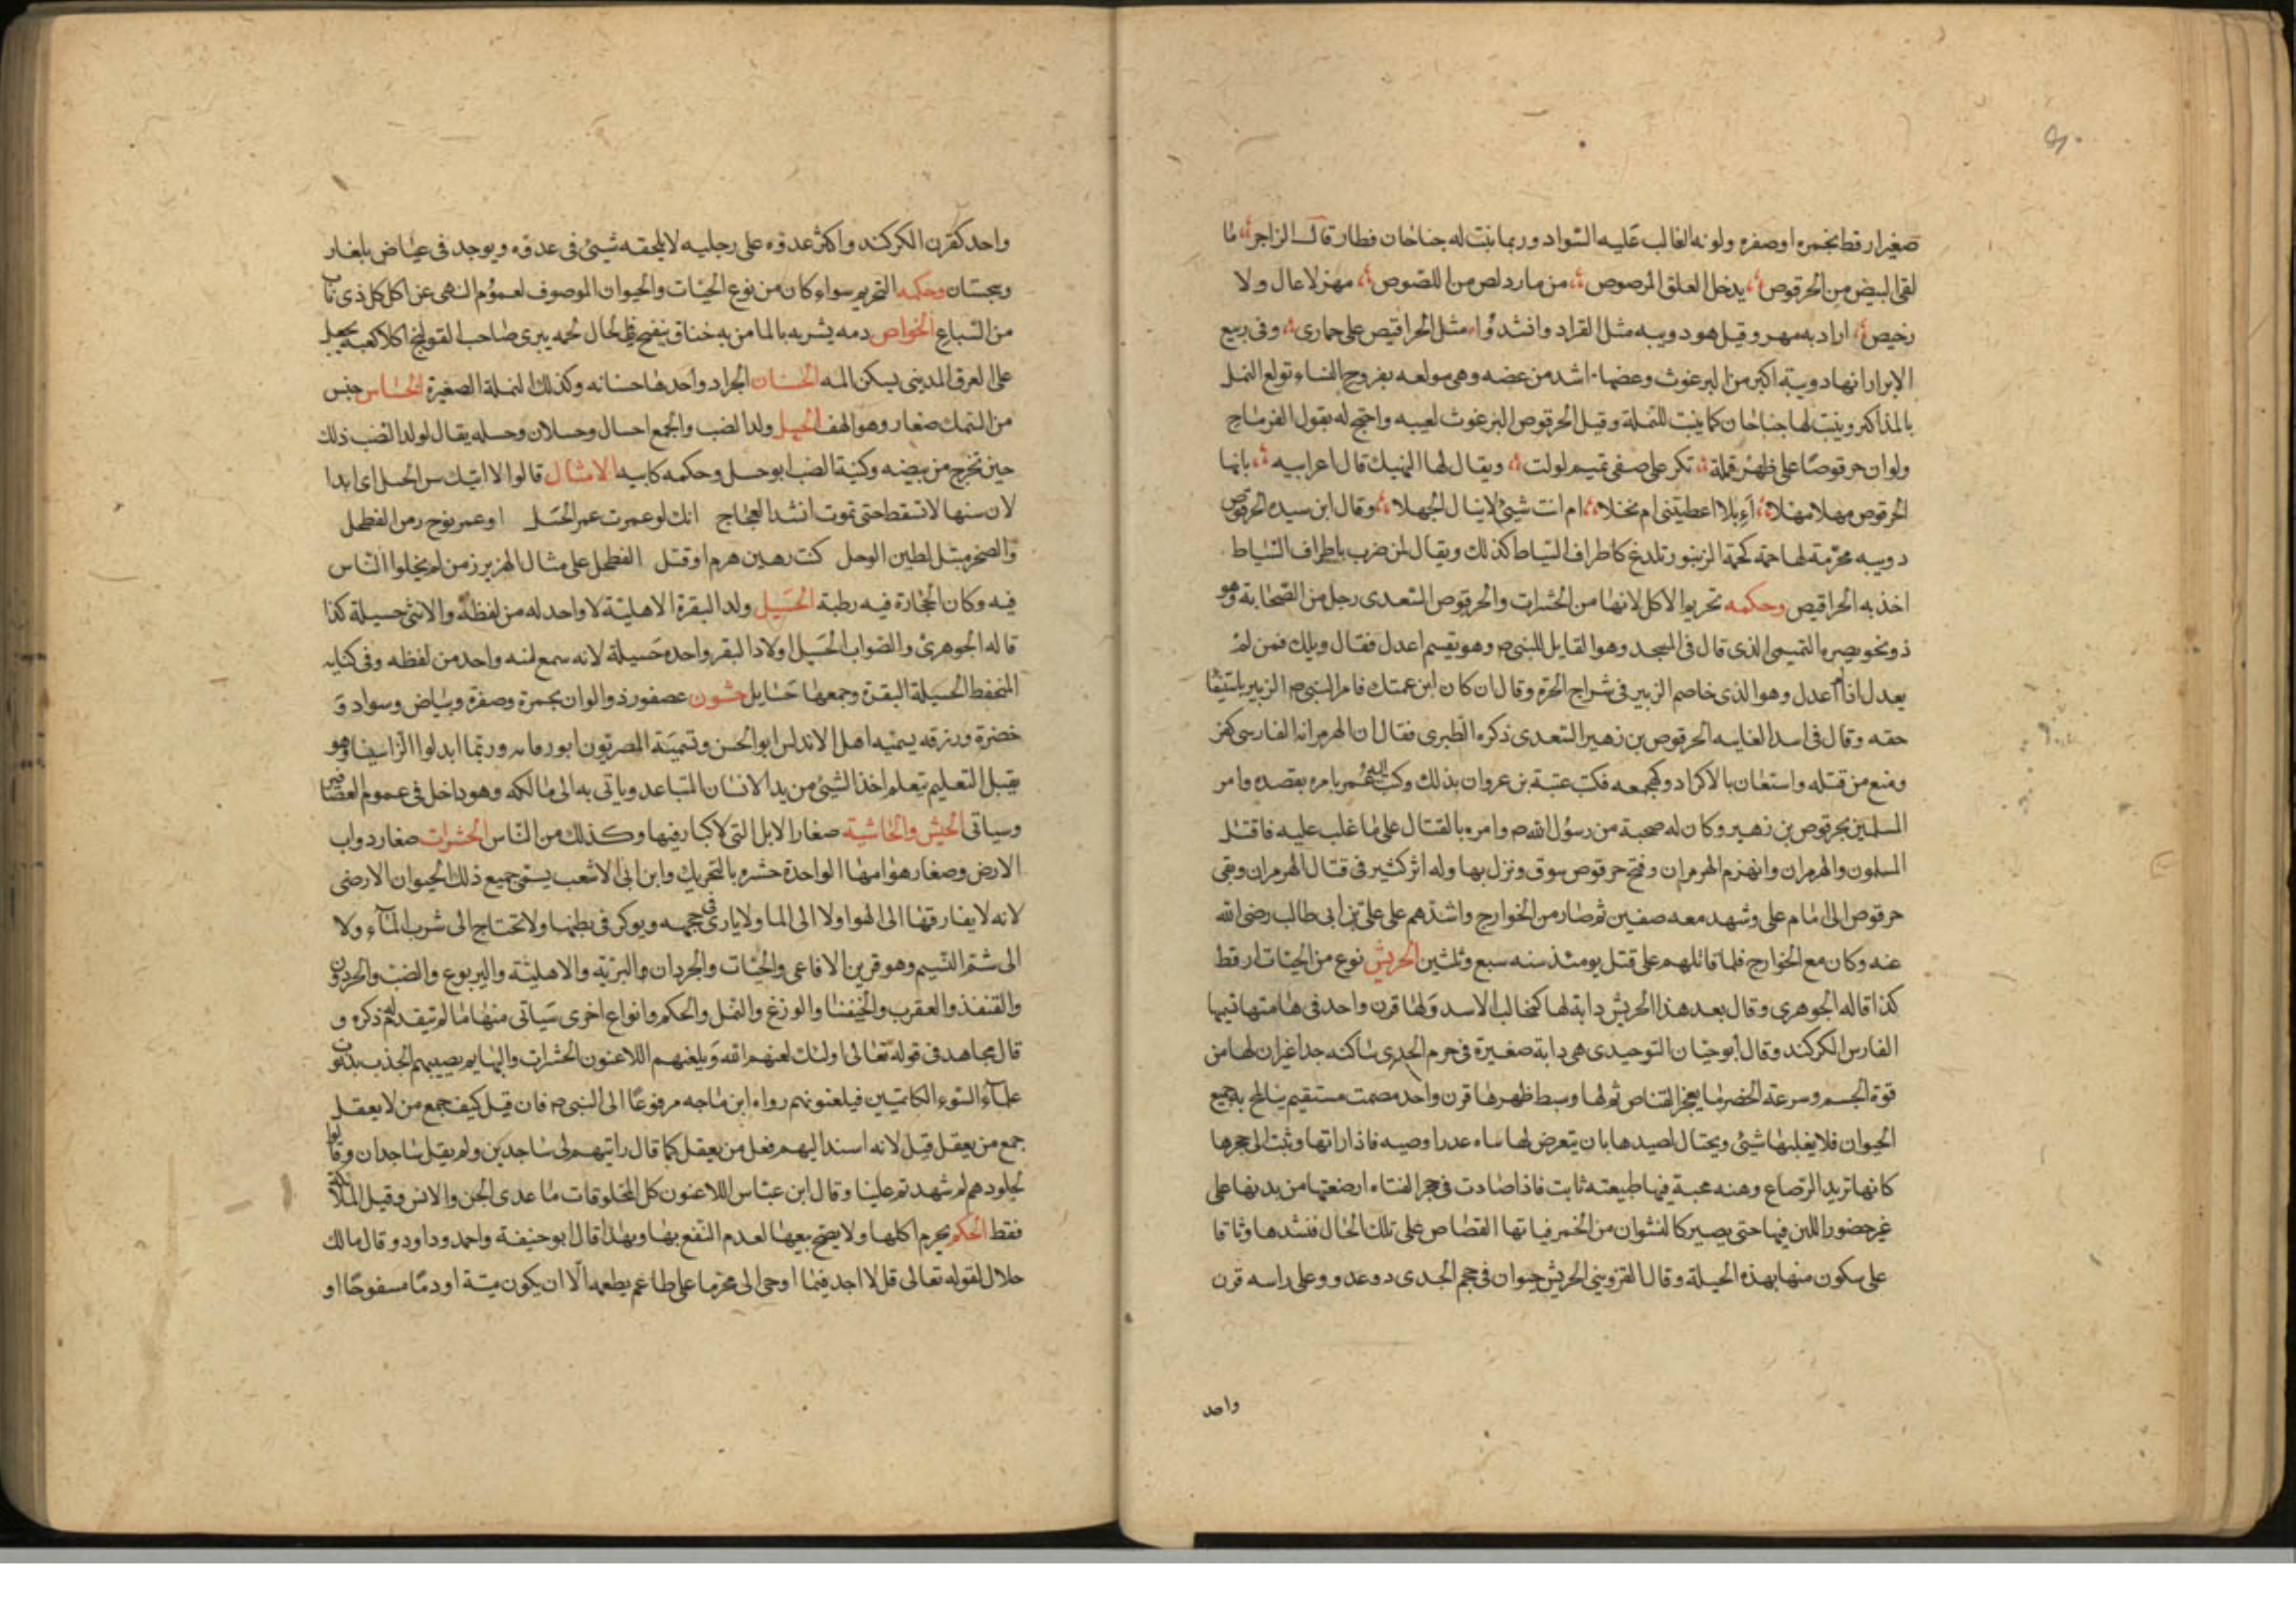 صغيرا رقط بحمره او صفره ولونه الغالب عليه السواد وربما ينبت له جناحان فطار قال الزاجر ما
لقى البيض من الحرقوص يدخل العلق المرصوص من مارد لص من اللصوص مهز لا عال ولا
رخيص اراد به مهر وقيل هو دويبه مثل القراد وانشدوا مثل الحراقيص على حمارى وفى ربيع
الابرار انها دويبة اكبر من البرغوث وعضها اشد من عضه وهى مولعه بفروج النساء تولع النمل
بالمذاكر وينبت لها جناحان كما ينبت للنملة وقيل الحرقوص البرغوث لعيبه واحتج له بقول الفرماح
ولوان حرقوصا على ظهر قملة تكر على صفى تميم لولت ويقال لها النهيك قال اعرابيه بانها
الحرقوص مهلا مهلا اءبلا اعطيتنى ام نخلا ام انت شيئ لا ينال لجهلا وقال ابن سيده الحرقوص
دويبه محزمة لها حمة كحمة الزنبور تلدغ كاطراف السياط كذلك ويقال لمن ضرب باطراف السياط
اخذ به الحراقيص وحكمه تحريم الاكل لانها من الحشرات والحرقوص السعدى رجل من الصحابة وهو
ذو نحويصره التميمى الذى قال فى المسجد وهو القايل للنبى ص وهو يقسم اعدل فقال ويلك فمن لم
يعدل اذا لم اعدل وهو الذى خاصم الزبير فى شراج الحرة وقال ان كان ابن عمتك فامر النبى ص الزبير باستيفا
حقه وقال فى اسد الغابه الحرقوص بن زهير السعدى ذكره الطبرى فقال ان الهرمزان الفارسى كفر
ومنع من قتله واستعان بالاكراد وكج جمعه فكتب عتبة بن عروان بذلك وكتب اليه عمر يامره بقصده وامر
المسلمين بحرقوص بن زهير وكان له صحبة من رسول الله ص وامره بالقتال على ما غلب عليه فاقتتل
المسلمون والهرمزان وانهزم الهرمزان وفتح حرقوص سوق ونزل بها وله اثر كثير فى قتال الهرمزان وبقى
حرقوص الى امام على وشهد معه صفين ثم صار من الخوارج واشدهم على على بن ابى طالب رضى الله
عنه وكان مع الخوارج فلما قاتلهم على قتل يومئذ سنه سبع وثلثين الحريش نوع من الحيات ارقط
كذا قاله الجوهرى وقال بعد هذا الحريش دابة لها كمخالب الاسد ولها قرن واحد فى هامتها تسميها
الفارس الكركند وقال ابو حيان التوحيدى هى دابة صغيرة فى جرم الجدى ساكنه جدا غير ان لها من
قوة الجسم وسرعة الحضر ما يعجز القناص ثم لها وسط ظهرها قرن واحد مصمت مستقيم يناطح به جميع
الحيوان فلا يغلبها شئ ويحتال لصيدها بان يتعرض لها ساه عدرا وصبيه فاذا راتها وثبت الى حجرها
كانها تريد الرضاع وهنه محبة فيها طبيعته ثابت فاذا صادت فى حجر الفتاه ارضعتها من يديها على
غير حضور اللبن فيها حتى يصير كالنشوان من الخمر فياتها القصاص على تلك الحال فنشدها وثاقا
على سكون منها بهذه الحيلة وقال القزوينى الحريش حيوان فى حجم الجدى د وعدو وعلى راسه قرن
واحد
واحد كقرن الكركند واكثر عدوه على رجليه لا يلحقه شيئ فى عدوه ويوجد فى غياض بلغار
وسجستان وحكمه التحريم سواء كان من نوع الحيات والحيوان الموصوف لعموم النهى عن اكل كل ذى ناب
من السباع الخواص دمه يشربه بالما من به خناق ينفتح فى الحال لحمه يبرى صاحب القولنج اكلا كعبه يجعل
على العرق المدينى يسكن المه الحسان الجراد واحدها حسانه وكذلك النملة الصغيرة الحساس جنس
من السمك صغار وهو الهف الحسل ولد الضب والجمع احسال وحسلان وحسله يقال لولد الضب ذلك
حين تخرج من بيضه وكنية الضب ابو حسل وحكمه كابيه الامثال قالوا لا اتيك سن الحسل اى ابدا
لان سنها لا تسقط حتى تموت انشد العجاج انك لو عمرت عمر الحسل او عمر نوح زمن الفطحل
والصخر مبتل لطين الوحل كنت رهين هرم او قتل الفطحل على مثال الهزبر زمن لم يخلوا الناس
فيه وكان الحجارة فيه رطبة الحسيل ولد البقرة الاهلية لا واحد له من لفظه والانثى حسيلة كذا
قاله الجوهرى والصواب الحسيل اولاد البقر واحده حسيلة لانه سمع لنه واحد من لفظه وفى كتايه
المتحفظ الحسيلة البقرة وجمعها حسايل حشون عصفور ذو الوان بحمرة وصفرة وبياض وسواد و
خضرة وزرقه يسميه اهل الاندلس ابو الحسن وتسميته المصريون ابو رمانه وربما ابدلوا الزا سينا وهو
يقبل التعليم يتعلم اخذ الشيئ من يد الانسان المتباعد وياتى به الى مالكه وهو داخل فى عموم العصافير
وسياتى الحيش والحاشية صغار الابل التى لا كبار فيها وكذلك من الناس الحشرات صغار دواب
الارض وصغار هوامها الواحدة حشره بالتحريك وابن ابى الاشعب يسمى جميع ذلك الحيوان الارضى
لانه لا يفارقها الى الهوا ولا الى الما ولا ياوى فى جحمه ويوكر فى بطنها ولا تحتاج الى شرب الماء ولا
الى شم النسيم وهو قرين الافاعى والحيات والجردان والبرية والاهلية واليربوع والضب والحردون
والقنفذ والعقرب والخنفسا والوزغ والنمل والحكم وانواع اخرى سياتى منها ما لم يتقدم ذكره و
قال مجاهد فى قوله تعالى اولئك لعنهم الله ويلعنهم اللاعنون الحشرات والبهايم يصيبهم الجذب بذنوب
علماء السوء الكاتمين فيلعنونهم رواه ابن ماجه مرفوعا الى النبى ص فان قيل كيف جمع من لا يعقل
جمع من يعقل قيل لانه اسند اليهم فعل من يعقل كما قال رايتهم لى ساجدين ولم يقل ساجدات وقالوا
لجلودهم لم شهدتم علينا وقال ابن عباس اللاعنون كل المخلوقات ما عدى الجن والانس وقيل الملائكة
فقط الحكم يحرم اكلها ولا يصح بيعها لعدم النفع بها وبهذا قال ابو حنيفة واحمد وداود وقال مالك
حلال لقوله تعالى قل لا اجد فيما اوحى الى محرما على طاعم يطعمه الا ان يكون ميتة او دما مسفوحا او